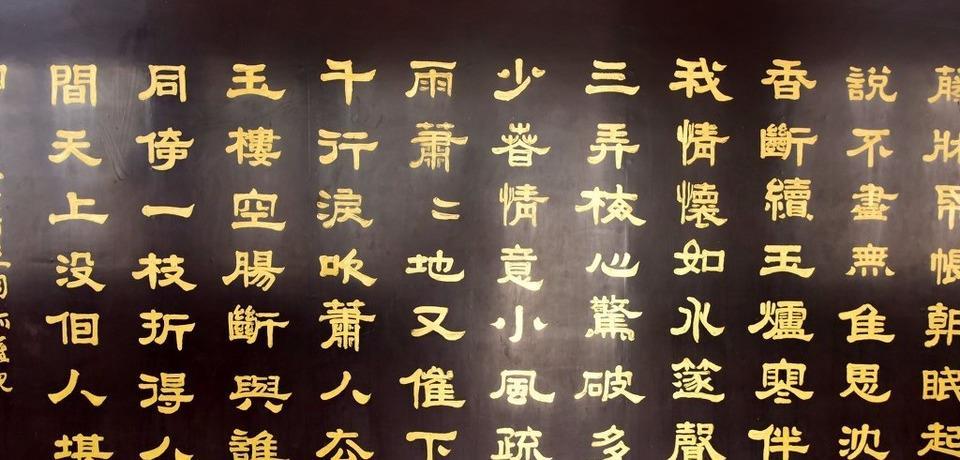 藤牀帋帳朝眠起
說不盡無佳思沈
香斷續玉爐寒伴
我情懷如水篴聲
三弄梅心驚破多
少春情意小風疏
雨蕭〻地又催下
千行淚吹蕭人去
玉樓空腸斷與誰
同倚一枝折得人
間天上没個人堪